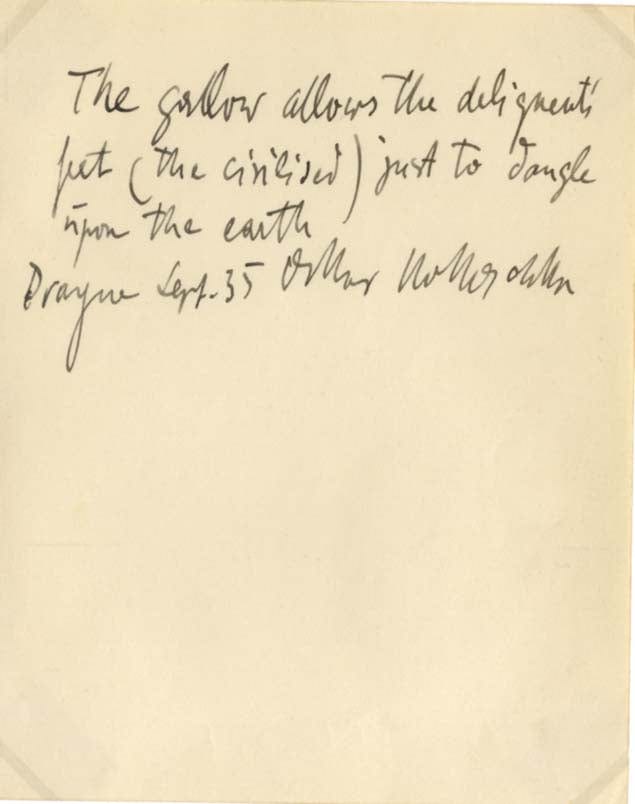 The gallow allows the deliquent's
feet (the civilised) just to dangle
upon the earth
Prague Sept. 35 Oskar Kokoschka